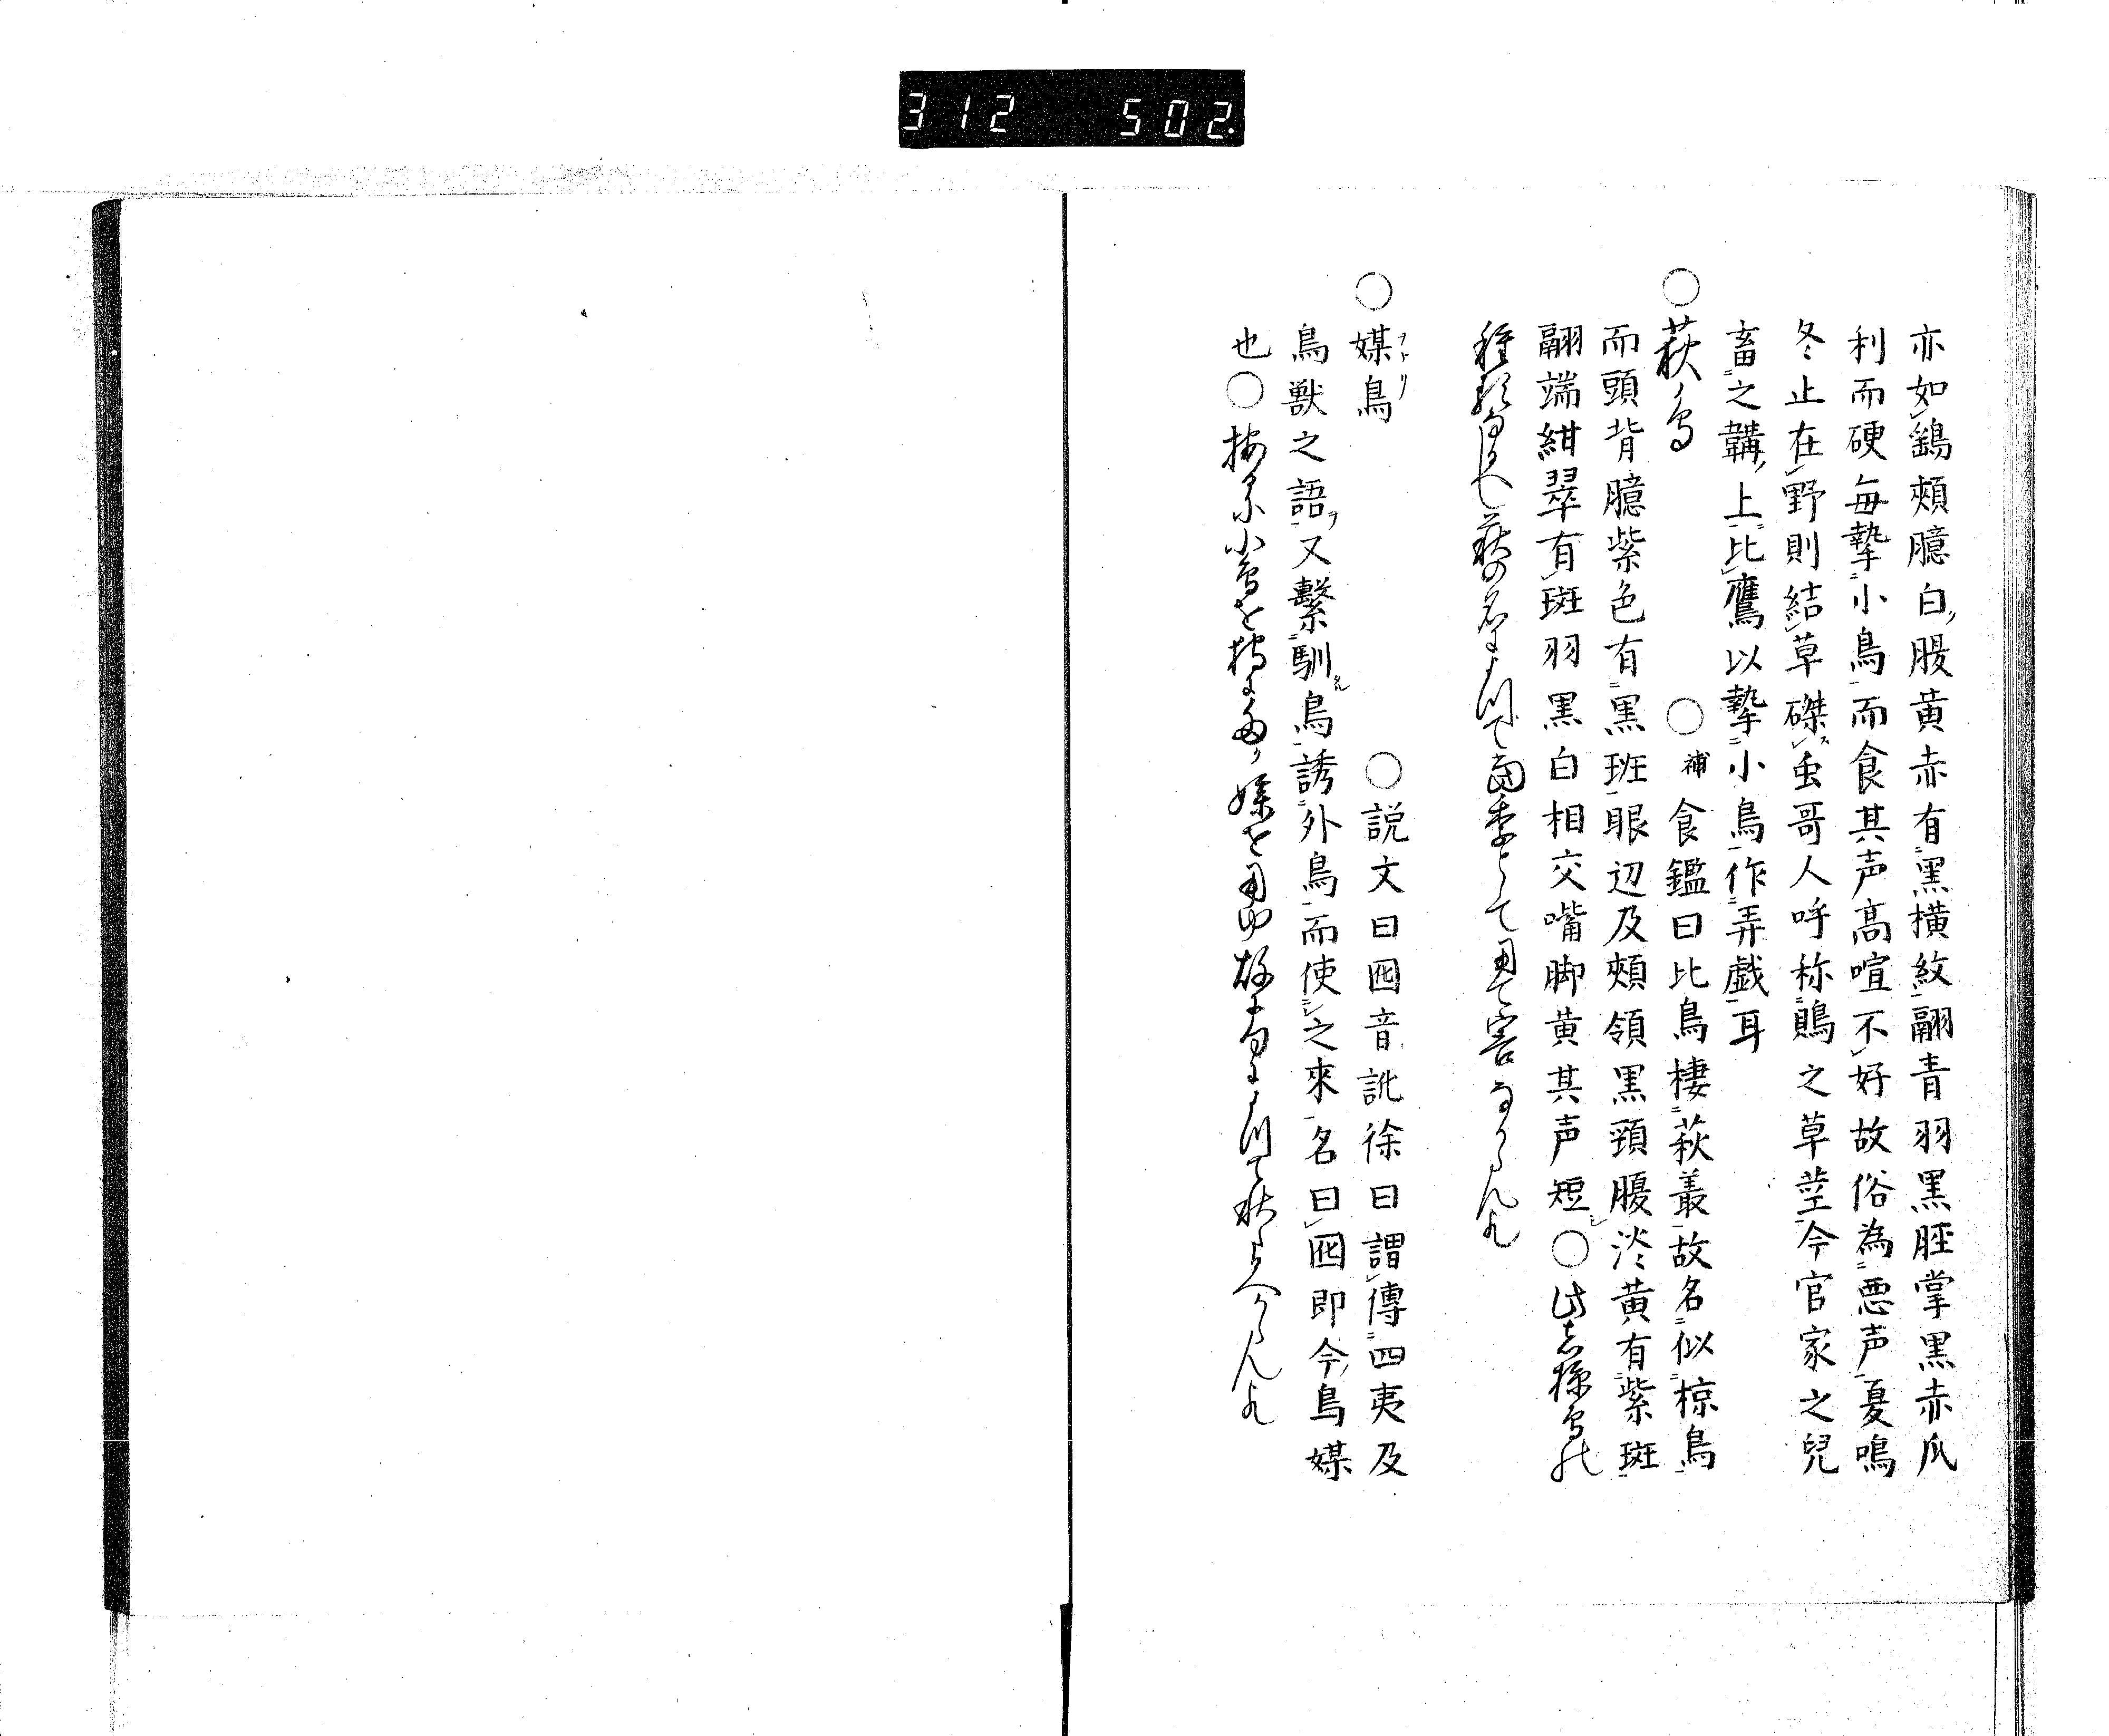 312 502.
亦如鷄頰臆白腹黄赤有黒横紋翮青羽黒脛掌黒赤爪
利而硬毎摯小鳥而食其声高喧不好故俗為悪声夏鳴
冬止在野則結草磔虫哥人呼称鵙之草茎今官家之兒
畜之鞲上比鷹以摯小鳥作弄戯耳
○萩ノ鳥 ○補食鑑曰比鳥棲萩叢故名似椋鳥
而頭背臆紫色有黒班眼辺及頰領黒頸腹淡黄有紫斑
翮端紺翠有斑羽黒白相交嘴脚黄其声短○此者椋鳥の
種類なるへし萩の名によつて
○媒鳥 ○説文曰囮音訛徐曰謂傳四夷及
鳥獣之語又繫馴鳥誘外鳥而使之來名曰囮即今鳥媒
也○按るに小鳥を